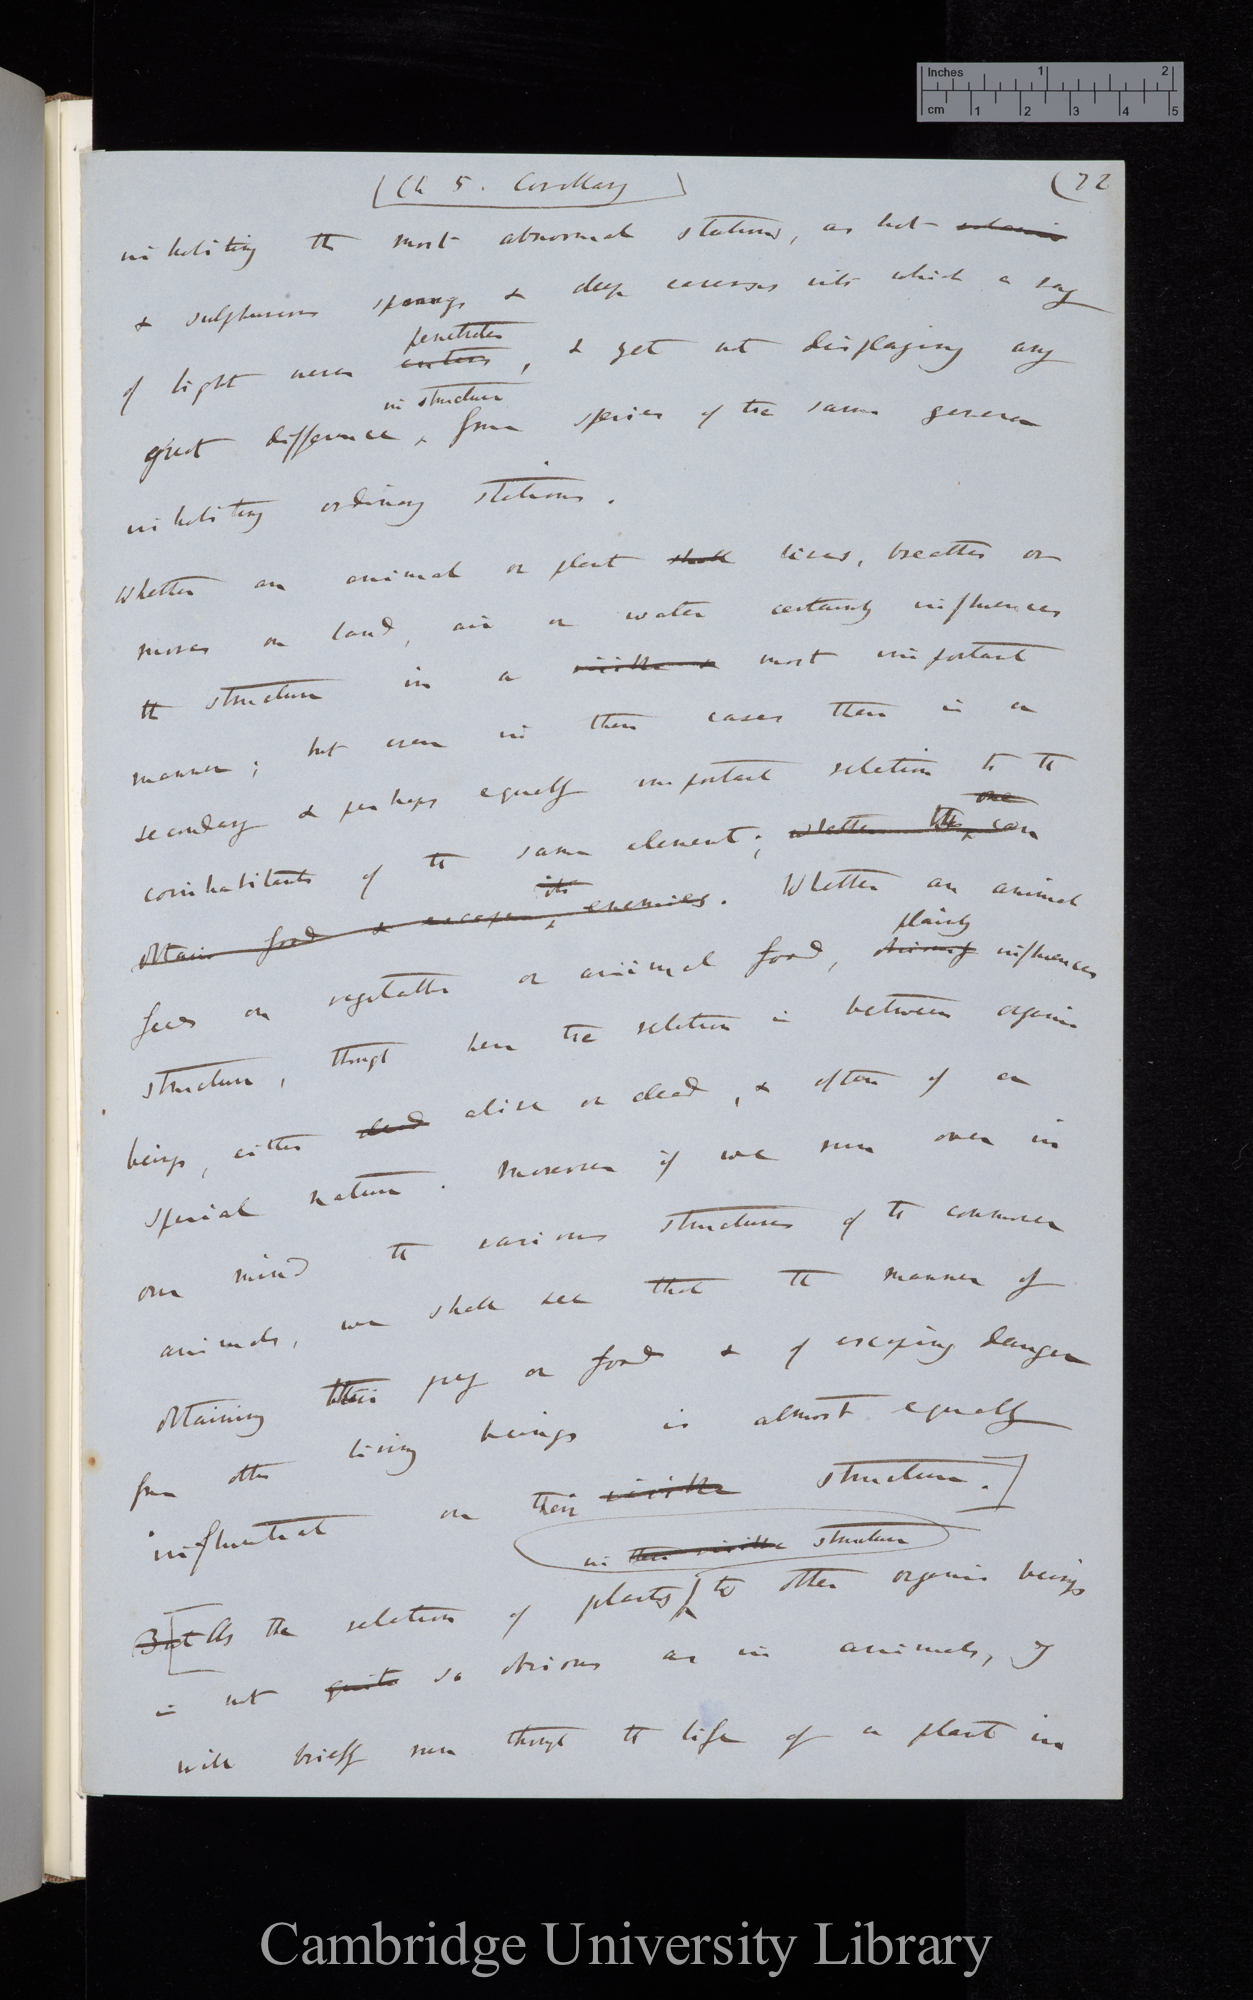 Inches 1 2
cm 1 2 3 4 5
(Ch 5. Corollary) (72
inhabiting the most abnormal stations, as hot
& sulphurous springs & deep caverns into which a ray
penetrates
of light never enters, & yet not displaying any
in structure
great difference, from species of the same genera
inhabiting ordinary stations.
Whether an animal or plant shall lives, breathes or
moves on land, air or water certainly influences
the structure in a visible & most important
manner; but even in these cases there is a
secondary & perhaps equally important relation to the
one
coinhabitants of the same element; whether the can
its
obtain food & escape enemies. Whether an animal
plainly
feeds on vegetable or animal food, obviously influences
structure, though here the relation is between organic
beings, either dead alive or dead, & often of a
special nature. Moreover if we run over in
our mind the various structures of the commoner
animals, we shall see that the manner of
obtaining their prey or food & of escaping danger
from other living beings is almost equally
influential on their visible structure.]
in their visible structure
But As the relation of plants to other organic beings
is not quite so obvious as in animals, I
will briefly run through the life of a plant in
Cambridge University Library